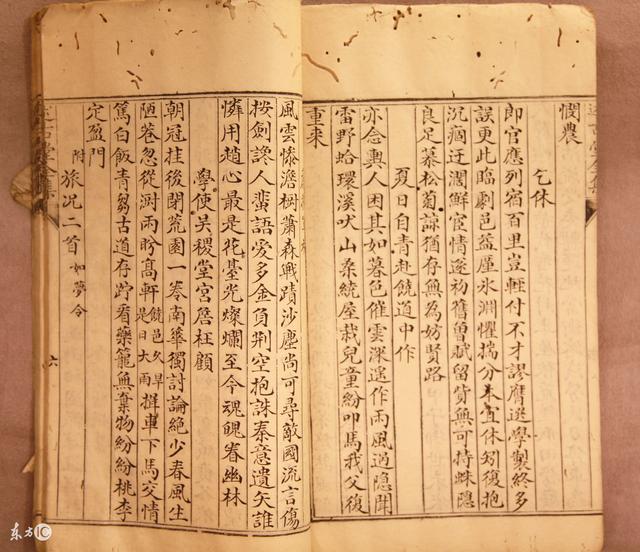 憫農
乞休
郎官應列宿百里豈輕付不才謬膺選學製終多
誤更此臨劇邑益厪氷淵懼揣分本宜休矧復抱
沉痼迂濶鮮宦情遂初舊曾賦留貲無可持蛛隱
良足慕松菊諒猶存無為妨賢路
夏日自青赴饒道中作
亦念輿人困其如暮色催雲深遙作雨風過隱聞
雷野蛤環溪吠山桑統屋栽兒童紛叩馬我父復
重来
風雲慘澹樹蕭森戰蹟沙塵尚可尋敵國流言傷
按劍讒人蜚語愛多金負荆空抱誅秦意遺矢誰
憐用趙心最是花臺光燦爛至今魂魄眷幽林
學使吴稷堂宮詹枉顧
朝冠挂後閉荒園一卷南華獨討論絶少春風生
陋巷忽從澍雨盼高軒饒邑久旱是日大雨撵車下馬交情
篤白飯青芻古道存跨看藥籠無棄物紛紛桃李
定盈門
附旅况二首如夢令
六
东方IC